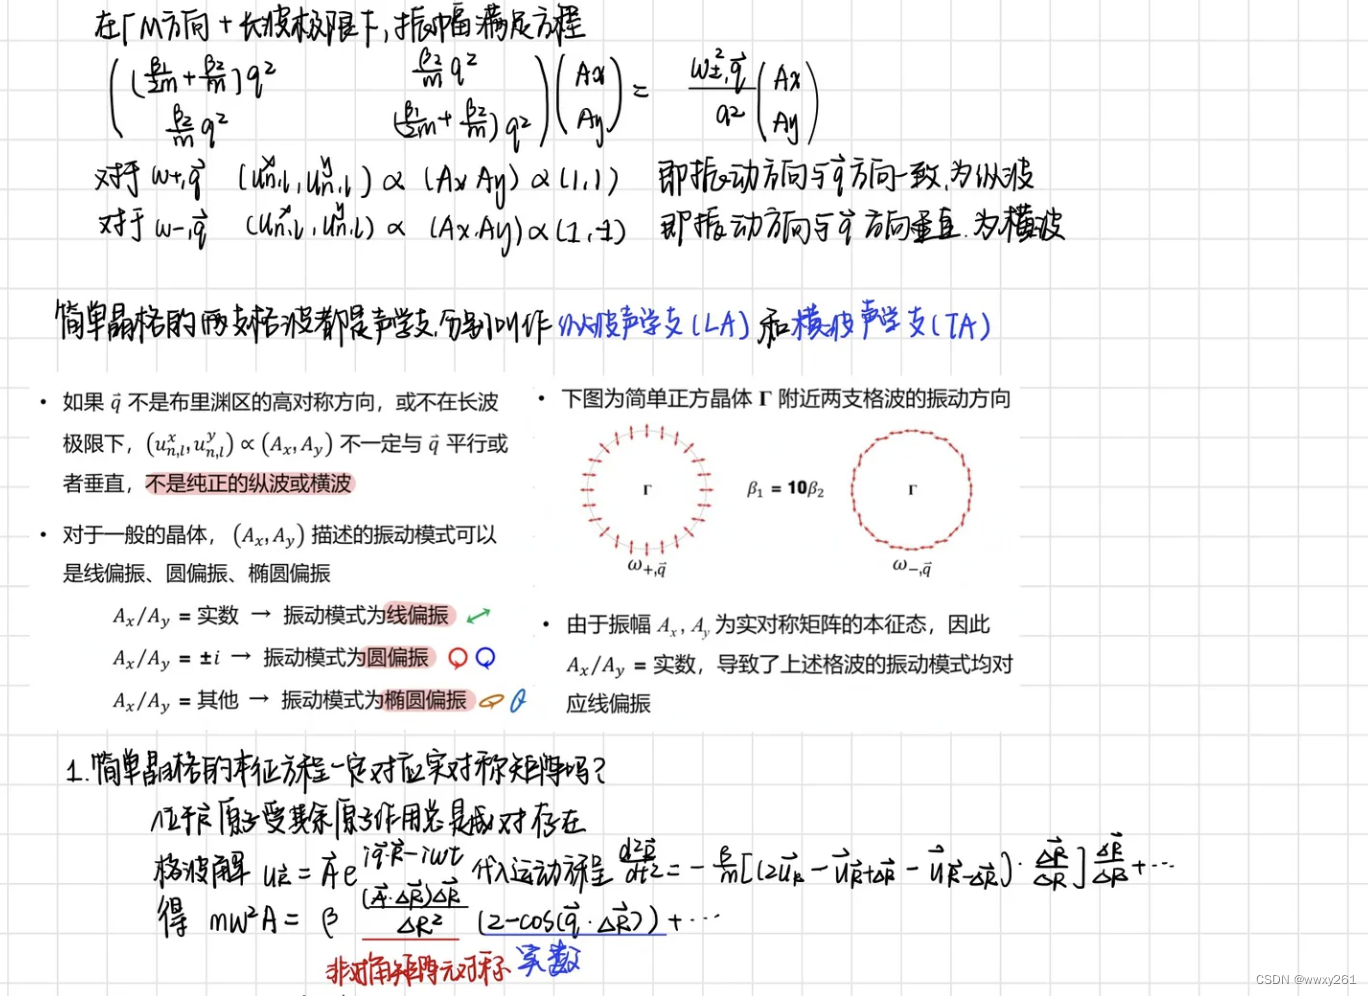 在ΓM方向 + 长波极限下, 振幅满足方程
( (β₁/2m + β₂/m) q²    β₂/m q² ) (Ax) = ω²±,q⃗ / q² (Ax)
( β₂/m q²    (β₁/2m + β₂/m) q² ) (Ay)    (Ay)
对于 ω+,q⃗ (uˣn,l, uʸn,l) ∝ (Ax Ay) ∝ (1,1) 即振动方向与q⃗方向一致,为纵波
对于 ω-,q⃗ (uˣn,l, uʸn,l) ∝ (Ax.Ay) ∝ (1,-1) 即振动方向与q⃗方向垂直.为横波
简单晶格的两支格波都是声学支,分别叫作纵波声学支(LA)和横波声学支(TA)
• 如果 q⃗ 不是布里渊区的高对称方向，或不在长波
极限下，(uˣn,l, uʸn,l) ∝ (Ax, Ay) 不一定与 q⃗ 平行或
者垂直，不是纯正的纵波或横波
• 对于一般的晶体，(Ax, Ay) 描述的振动模式可以
是线偏振、圆偏振、椭圆偏振
Ax/Ay = 实数 → 振动模式为线偏振
Ax/Ay = ±i → 振动模式为圆偏振
Ax/Ay = 其他 → 振动模式为椭圆偏振
• 下图为简单正方晶体 Γ 附近两支格波的振动方向
Γ β₁ = 10β₂ Γ
ω+,q⃗ ω−,q⃗
• 由于振幅 Ax, Ay 为实对称矩阵的本征态，因此
Ax/Ay = 实数，导致了上述格波的振动模式均对
应线偏振
1.简单晶格的本征方程一定对应实对称矩阵吗?
位于R⃗原子受其余原子作用总是成对存在
格波解 uR⃗ = A⃗ e^(iq⃗·R⃗-iωt) 代入运动方程 d²R⃗/dt² = -β/m[(2u⃗R - u⃗R⃗+ΔR⃗ - u⃗R⃗-ΔR⃗)·ΔR⃗/ΔR] ΔR⃗/ΔR + ···
得 mω²A = β (A⃗·ΔR⃗)ΔR⃗/ΔR² (2-cos(q⃗·ΔR⃗)) + ···
非对角矩阵元对称 实数
CSDN @wwxy261